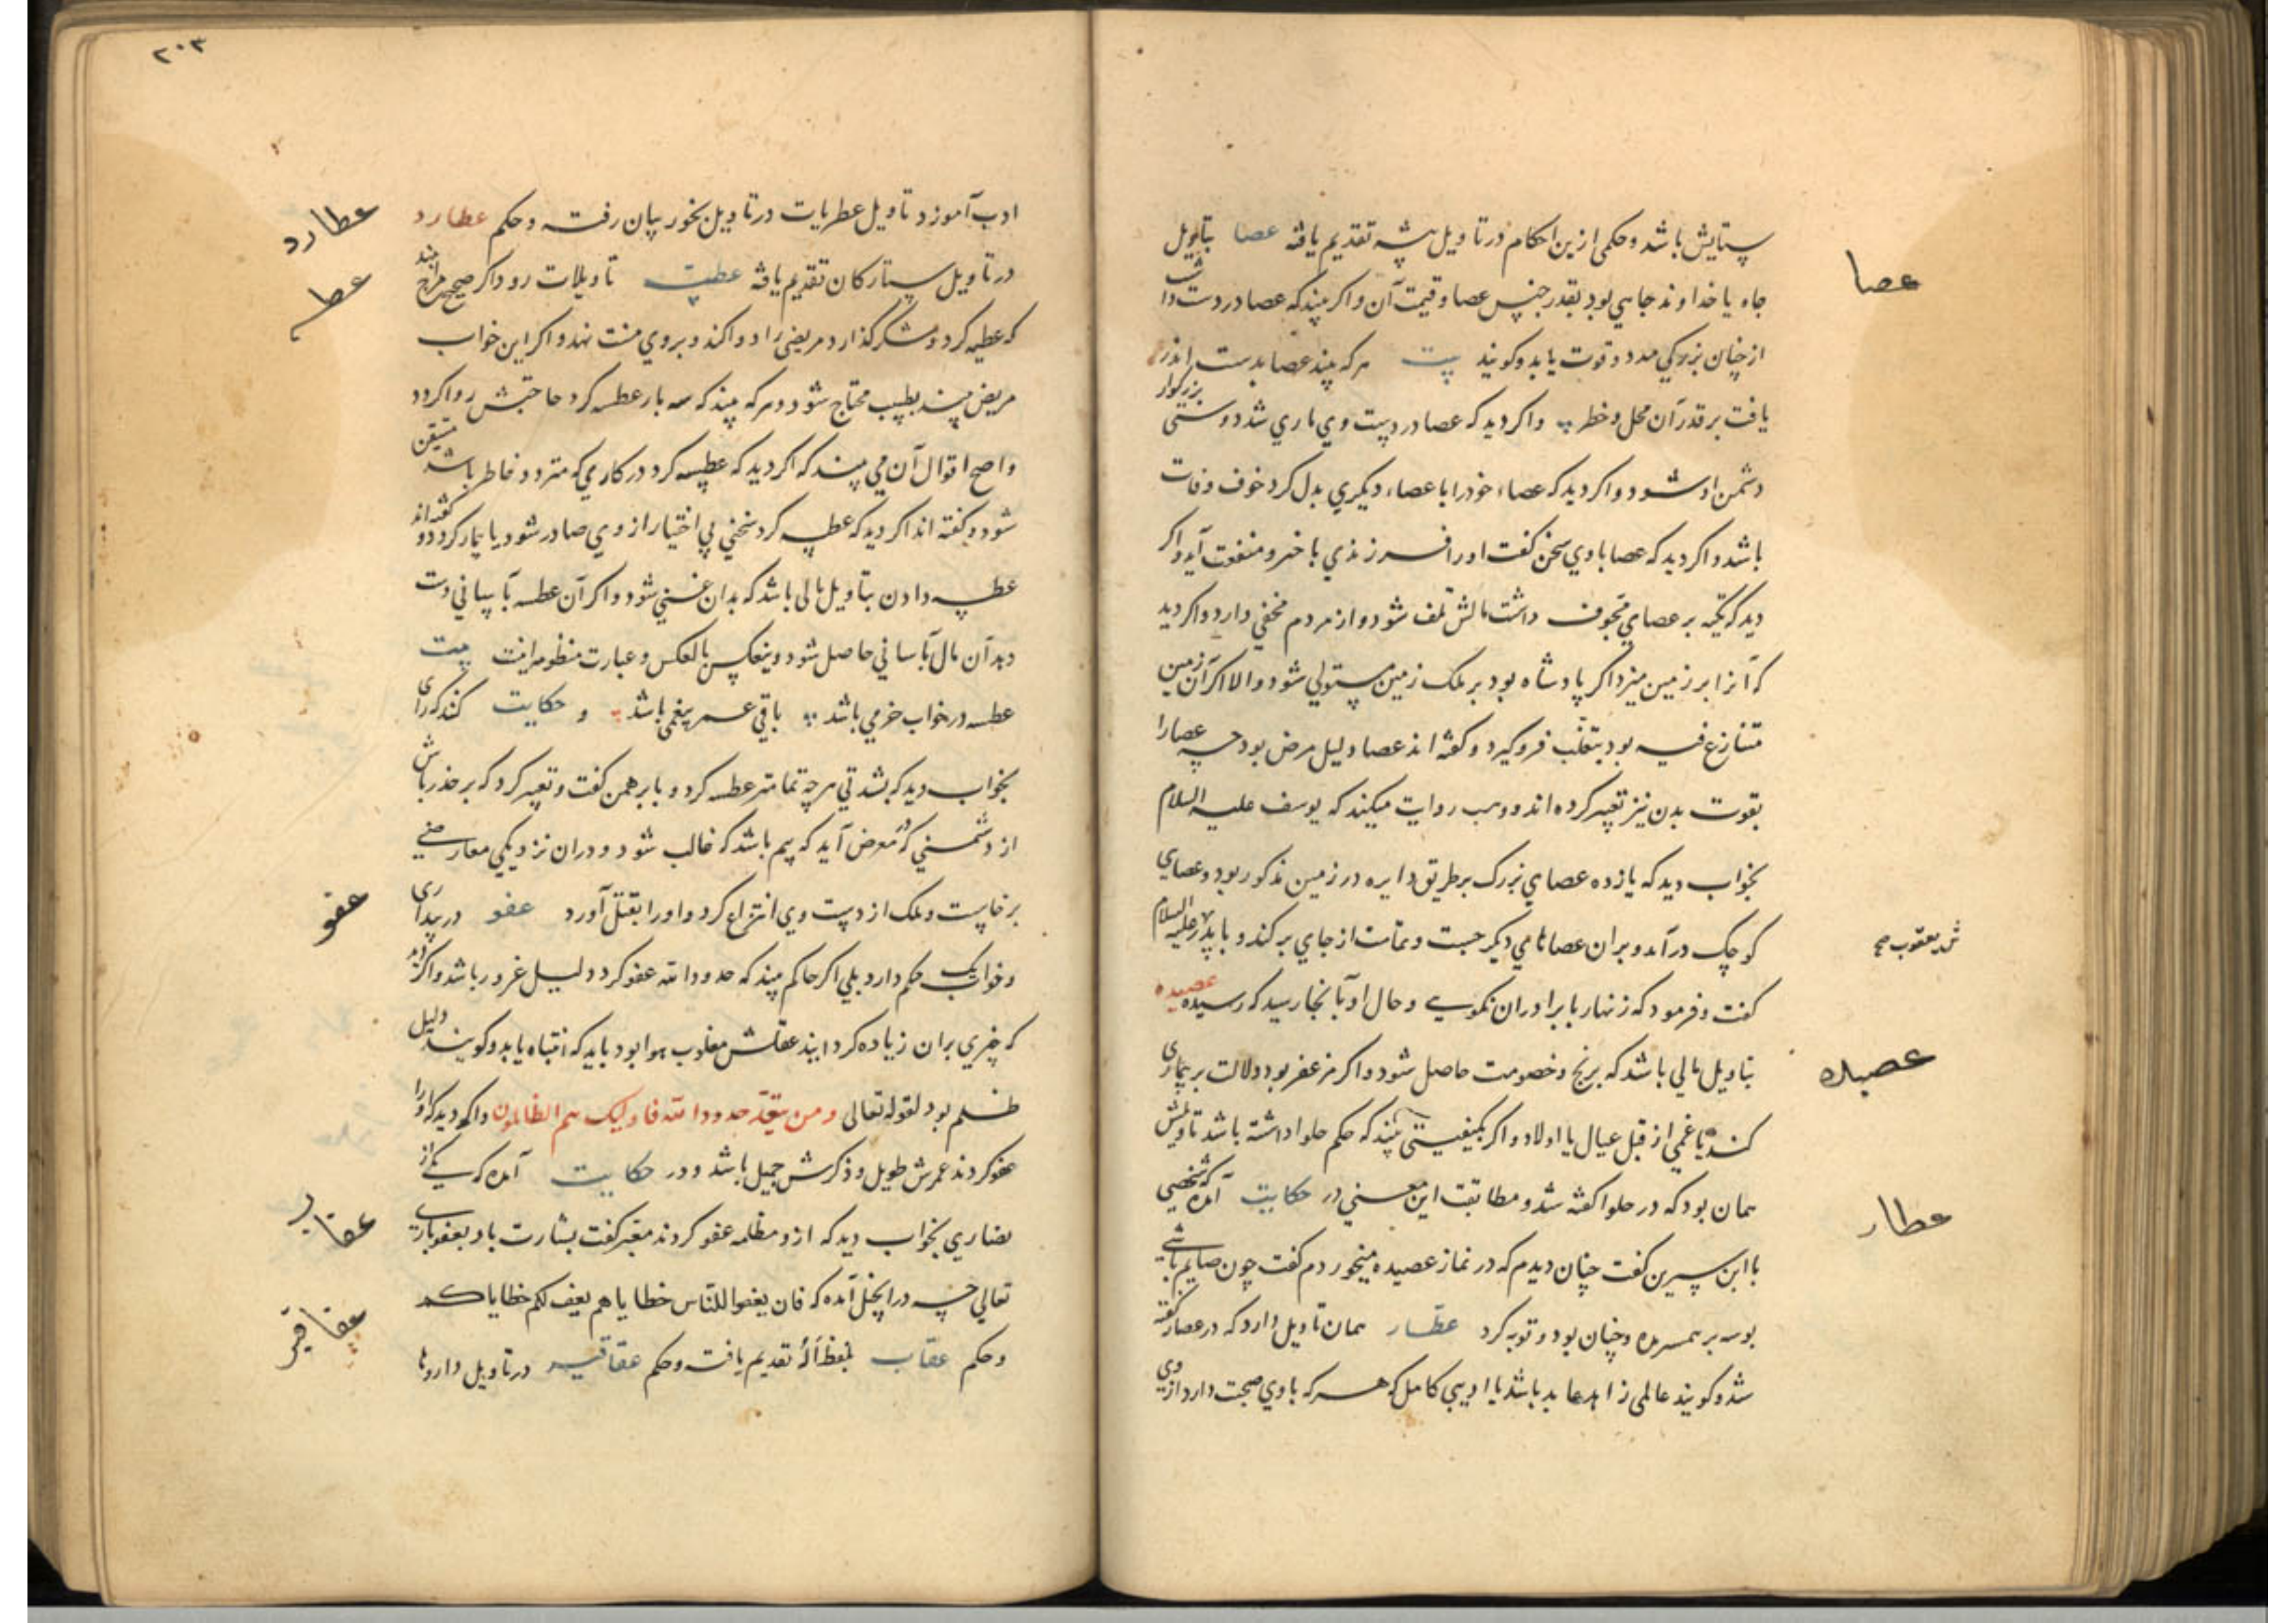 عصا
ستایش باشد و حکمی ازین احکام در تاویل پشه تقدیم یافته عصا بتاویل
جاه یا خداوند جاهی بود بقدر جنس عصا و قیمت آن و اگر بیند که عصا در دست داشت
از چنان بزرگی مدد و قوت یابد و گویند بیت هر که بیند عصا بدست اندر
یافت بر قدر آن محل و خطر و اگر دید که عصا در دست وی ماری شد دوستی بزرگوار
دشمن او شود و اگر دید که عصاء خود را با عصاء دیگری بدل کرد خوف وفات
باشد و اگر دید که عصا با وی سخن گفت او را فرزندی با خیر و منفعت آید و اگر
دید که تکیه بر عصای مجوف داشت مالش تلف شود و از مردم مخفی دارد و اگر دید
که آنرا بر زمین میزد اگر پادشاه بود بر ملک زمین مستولی شود و الا اگر آن زمین
متنازع فیه بود بتغلب فرو گیرد و گفته اند عصا دلیل مرض بود چه عصا را
بقوت بدن نیز تعبیر کرده اند و وهب روایت میکند که یوسف علیه السلام
بخواب دید که یازده عصای بزرگ بر طریق دایره در زمین مذکور بود و عصای
کوچک در آمد و بر ان عصاهای دیگر جست و تمامت از جای بر کند و با پدر علیه السلام
ش یعقوب صح
گفت و فرمود که زنهار با برادران نگویی و حال او تا بانجا رسید که رسیده عصیده
عصیده
بتاویل مالی باشد که برنج و خصومت حاصل شود و اگر مزعفر بود دلالت بر بیماری
کند یا غمی از قبل عیال یا اولاد و اگر بکیفیتی بیند که حکم حلوا داشته باشد تاویلش
همان بود که در حلوا گفته شد و مطابقت این معنی در حکایت آمده که شخصی
عطار
با ابن سیرین گفت چنان دیدم که در نماز عصیده میخوردم گفت چون صایم باشی
بوسه بر همسر مده و چنان بود و توبه کرد عطّار همان تاویل دارد که در عصار گفته
شد و گویند عالمی زاهد عابد باشد یا ادیبی کامل که هر که با وی صحبت دارد از وی
۲۰۳
ادب آموزد تاویل عطریات در تاویل بخور بیان رفت و حکم عطارد
عطارد
در تاویل ستارگان تقدیم یافته عطیت تاویلات رود اگر صحیح مزاج بیند
عط
که عطسه کرد و شکر گذارد مریضی را دوا کند و بر وی منت نهد و اگر این خواب
مریض بیند بطبیب محتاج شود و هر که بیند که سه بار عطسه کرد حاجتش روا گردد
و اصح اقوال آن می بیند که اگر دید که عطسه کرد در کاری که متردد خاطر باشد متیقن
شود و گفته اند اگر دید که عطسه کرد سخنی بی اختیار از وی صادر شود یا بیمار گردد و گفته اند
عطسه دادن بتاویل مالی باشد که بدان غنی شود و اگر آن عطسه بآسانی دست
دهد آن مال بآسانی حاصل شود و ینعکس بالعکس و عبارت منظومه اینست بیت
عطسه در خواب خرمی باشد باقی عمر بیغمی باشد و حکایت کنند که رای
بخواب دید که بشدتی هر چه تمامتر عطسه کرد و با برهمن گفت و تعبیر کرد که بر حذر باش
از دشمنی که معرض آید که بیم باشد که غالب شود و دران نزدیکی معارضی
برخاست و ملک از دست وی انتزاع کرد و او را بقتل آورد عفو در بیداری
عفو
و خواب یک حکم دارد بلی اگر حاکم بیند که حدود الله عفو کرد دلیل غرور باشد و اگر دید
که چیزی بران زیاده گردانید عقلش مغلوب هوا بود باید که انتباه یابد و گویند دلیل
ظلم بود لقوله تعالی و من یتعدّ حدود الله فاولیک هم الظالمون و اگر دید که او را
عفو کردند عمرش طویل و ذکرش جمیل باشد و در حکایت آمده که یکی از
نصاری بخواب دید که ازو مظلمه عفو کردند معبّر گفت بشارت باد بعفو باری
عقاب
تعالی چه در انجیل آمده که فان یغفوا للناس خطایاهم یعف لکم خطایاکم
و حکم عقاب بلفظ آلُهْ تقدیم یافت و حکم عقاقیر در تاویل داروها
عقاقیر